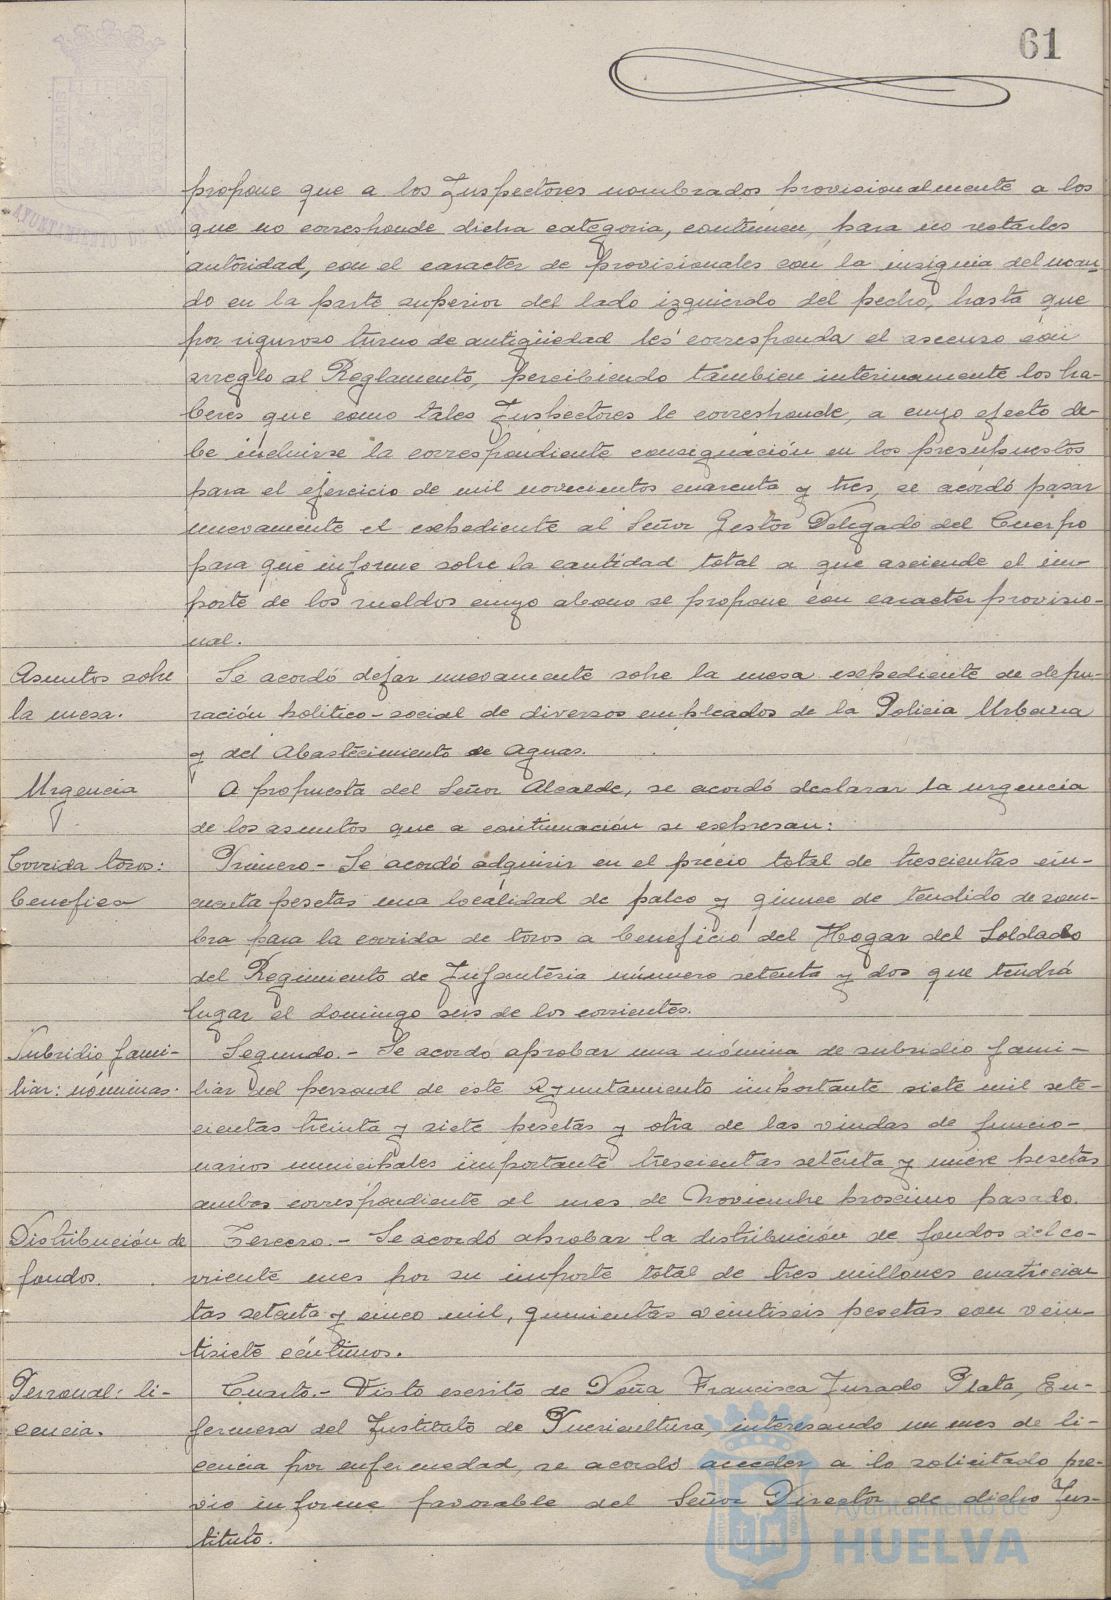 61
AYUNTAMIENTO DE
propone que a los Inspectores nombrados provisionalmente a los
que no corresponde dicha categoria, continuen, para no restarles
autoridad, con el caracter de provisionales con la insignia del man-
do en la parte superior del lado izquierdo del pecho, hasta que
por riguroso turno de antigüedad les corresponda el ascenso con
arreglo al Reglamento, percibiendo tambien interinamente los ha-
beres que como tales Inspectores le corresponde, a cuyo efecto de-
be incluirse la correspondiente consignación en los presupuestos
para el ejercicio de mil novecientos cuarenta y tres, se acordó pasar
nuevamente el expediente al Señor Gestor Delegado del Cuerpo
para que informe sobre la cantidad total a que asciende el im-
porte de los sueldos cuyo abono se propone con caracter provisio-
nal.
Asuntos sobre
la mesa.
Se acordó dejar nuevamente sobre la mesa expediente de depu-
ración politico-social de diversos empleados de la Policia Urbana
y del Abastecimiento de Aguas.
Urgencia
A propuesta del Señor Alcalde, se acordó declarar la urgencia
de los asuntos que a continuación se expresan:
Corrida toros:
benefica
Primero- Se acordó adquirir en el precio total de trescientas cin-
cuenta pesetas una localidad de palco y quince de tendido de som-
bra para la corrida de toros a beneficio del Hogar del Soldado
del Regimiento de Infanteria número setenta y dos que tendrá
lugar el domingo seis de los corrientes.
Subsidio fami-
liar: nóminas.
Segundo.- Se acordó aprobar una nómina de subsidio fami-
liar del personal de este Ayuntamiento importante siete mil sete-
cientas treinta y siete pesetas y otra de las viudas de funcio-
narios municipales importante trescientas setenta y nueve pesetas
ambas correspondiente al mes de Noviembre proximo pasado.
Distribución de
fondos.
Tercero.- Se acordó aprobar la distribución de fondos del co-
rriente mes por su importe total de tres millones cuatrocien
tas setenta y cinco mil, quinientas veintiseis pesetas con vein-
tisiete céntimos.
Personal: li-
cencia.
Cuarto.- Visto escrito de Doña Francisca Jurado Plata, En-
fermera del Instituto de Puericultura, interesando un mes de li-
cencia por enfermedad, se acordó acceder a lo solicitado pre-
vio informe favorable del Señor Director de dicho Ins-
tituto.
Ayuntamiento de
HUELVA